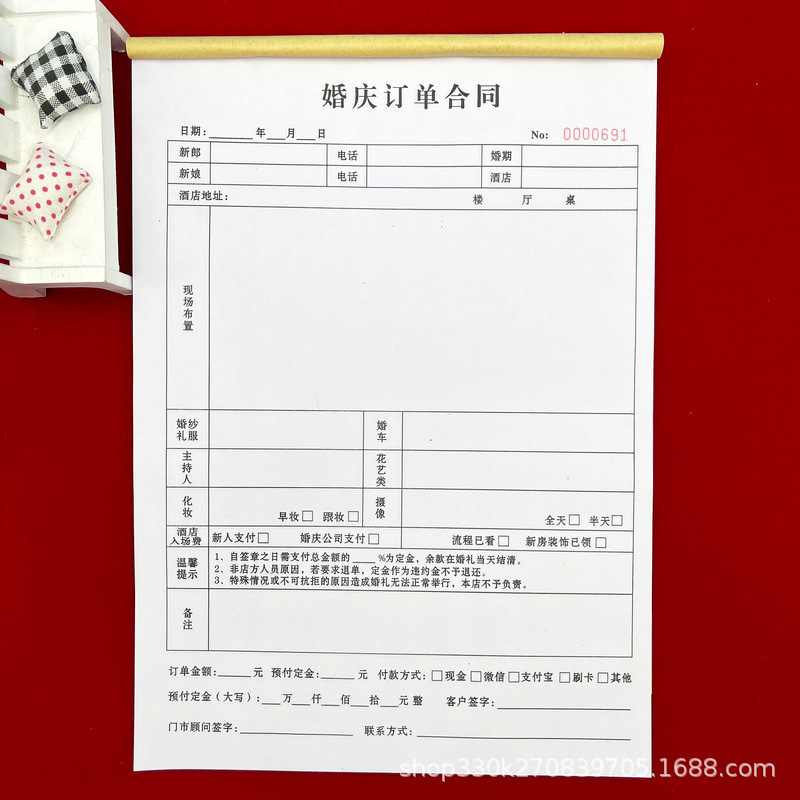 婚庆订单合同
日期：______年___月___日 No: 0000691
新郎 电话 婚期
新娘 电话 酒店
酒店地址： 楼 厅 桌
现场布置
婚纱礼服 婚车
主持人 花艺类
化妆 早妆□ 跟妆□ 摄像 全天□ 半天□
酒店入场费 新人支付□ 婚庆公司支付□ 流程已看□ 新房装饰已领□
温馨提示
1、自签章之日需支付总金额的____%为定金，余款在婚礼当天结清。
2、非店方人员原因，若要求退单，定金作为违约金不予退还。
3、特殊情况或不可抗拒的原因造成婚礼无法正常举行，本店不予负责。
备注
订单金额：_____元 预付定金：_____元 付款方式：□现金□微信□支付宝□刷卡□其他
预付定金（大写）：___万___仟___佰___拾___元 整 客户签字：____________
门市顾问签字：____________ 联系方式：____________
shop330k270839705.1688.com